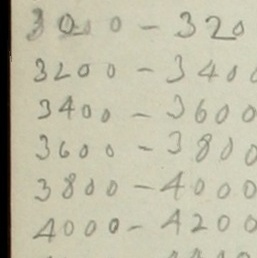 3000 - 320
3200 - 340
3400 - 3600
3600 - 3800
3800 - 4000
4000 - 4200